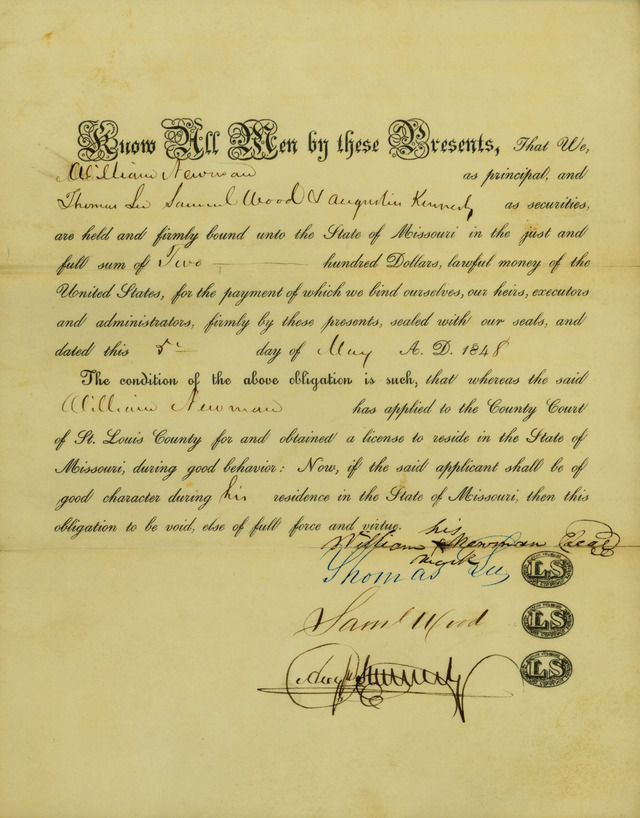 Know All Men by these Presents, That We,
William Newman as principal, and
Thomas Lee Samuel Wood & Augustin Kennedy as securities,
are held and firmly bound unto the State of Missouri in the just and
full sum of Two hundred Dollars, lawful money of the
United States, for the payment of which we bind ourselves, our heirs, executors
and administrators, firmly by these presents, sealed with our seals, and
dated this 5th day of May A. D. 1848
The condition of the above obligation is such, that whereas the said
William Newman has applied to the County Court
of St. Louis County for and obtained a license to reside in the State of
Missouri, during good behavior: Now, if the said applicant shall be of
good character during his residence in the State of Missouri, then this
obligation to be void, else of full force and virtue.
his
William x Newman Seal
mark
Thomas Lee LS
Saml Wood LS
Kennedy LS